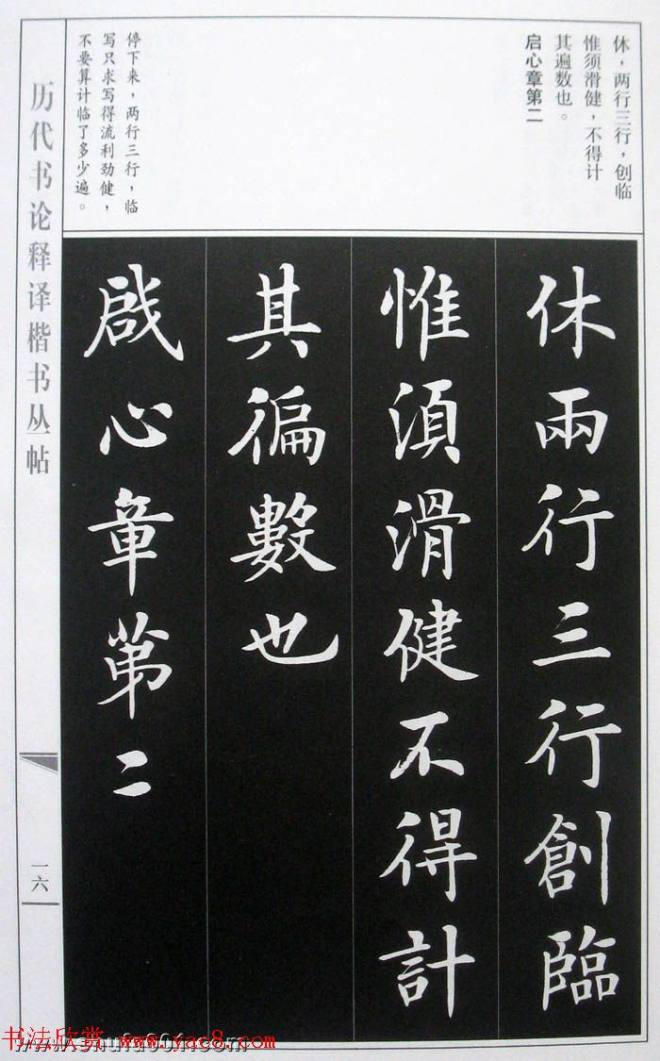 休，两行三行，创临
惟须滑健，不得计
其遍数也。
启心章第二
停下来，两行三行，临
写只求写得流利劲健，
不要算计临了多少遍。
休兩行三行創臨
惟湏滑健不得計
其徧數也
啟心章第二
历代书论释译楷书丛帖
一六
书法欣赏 www.yac8.com